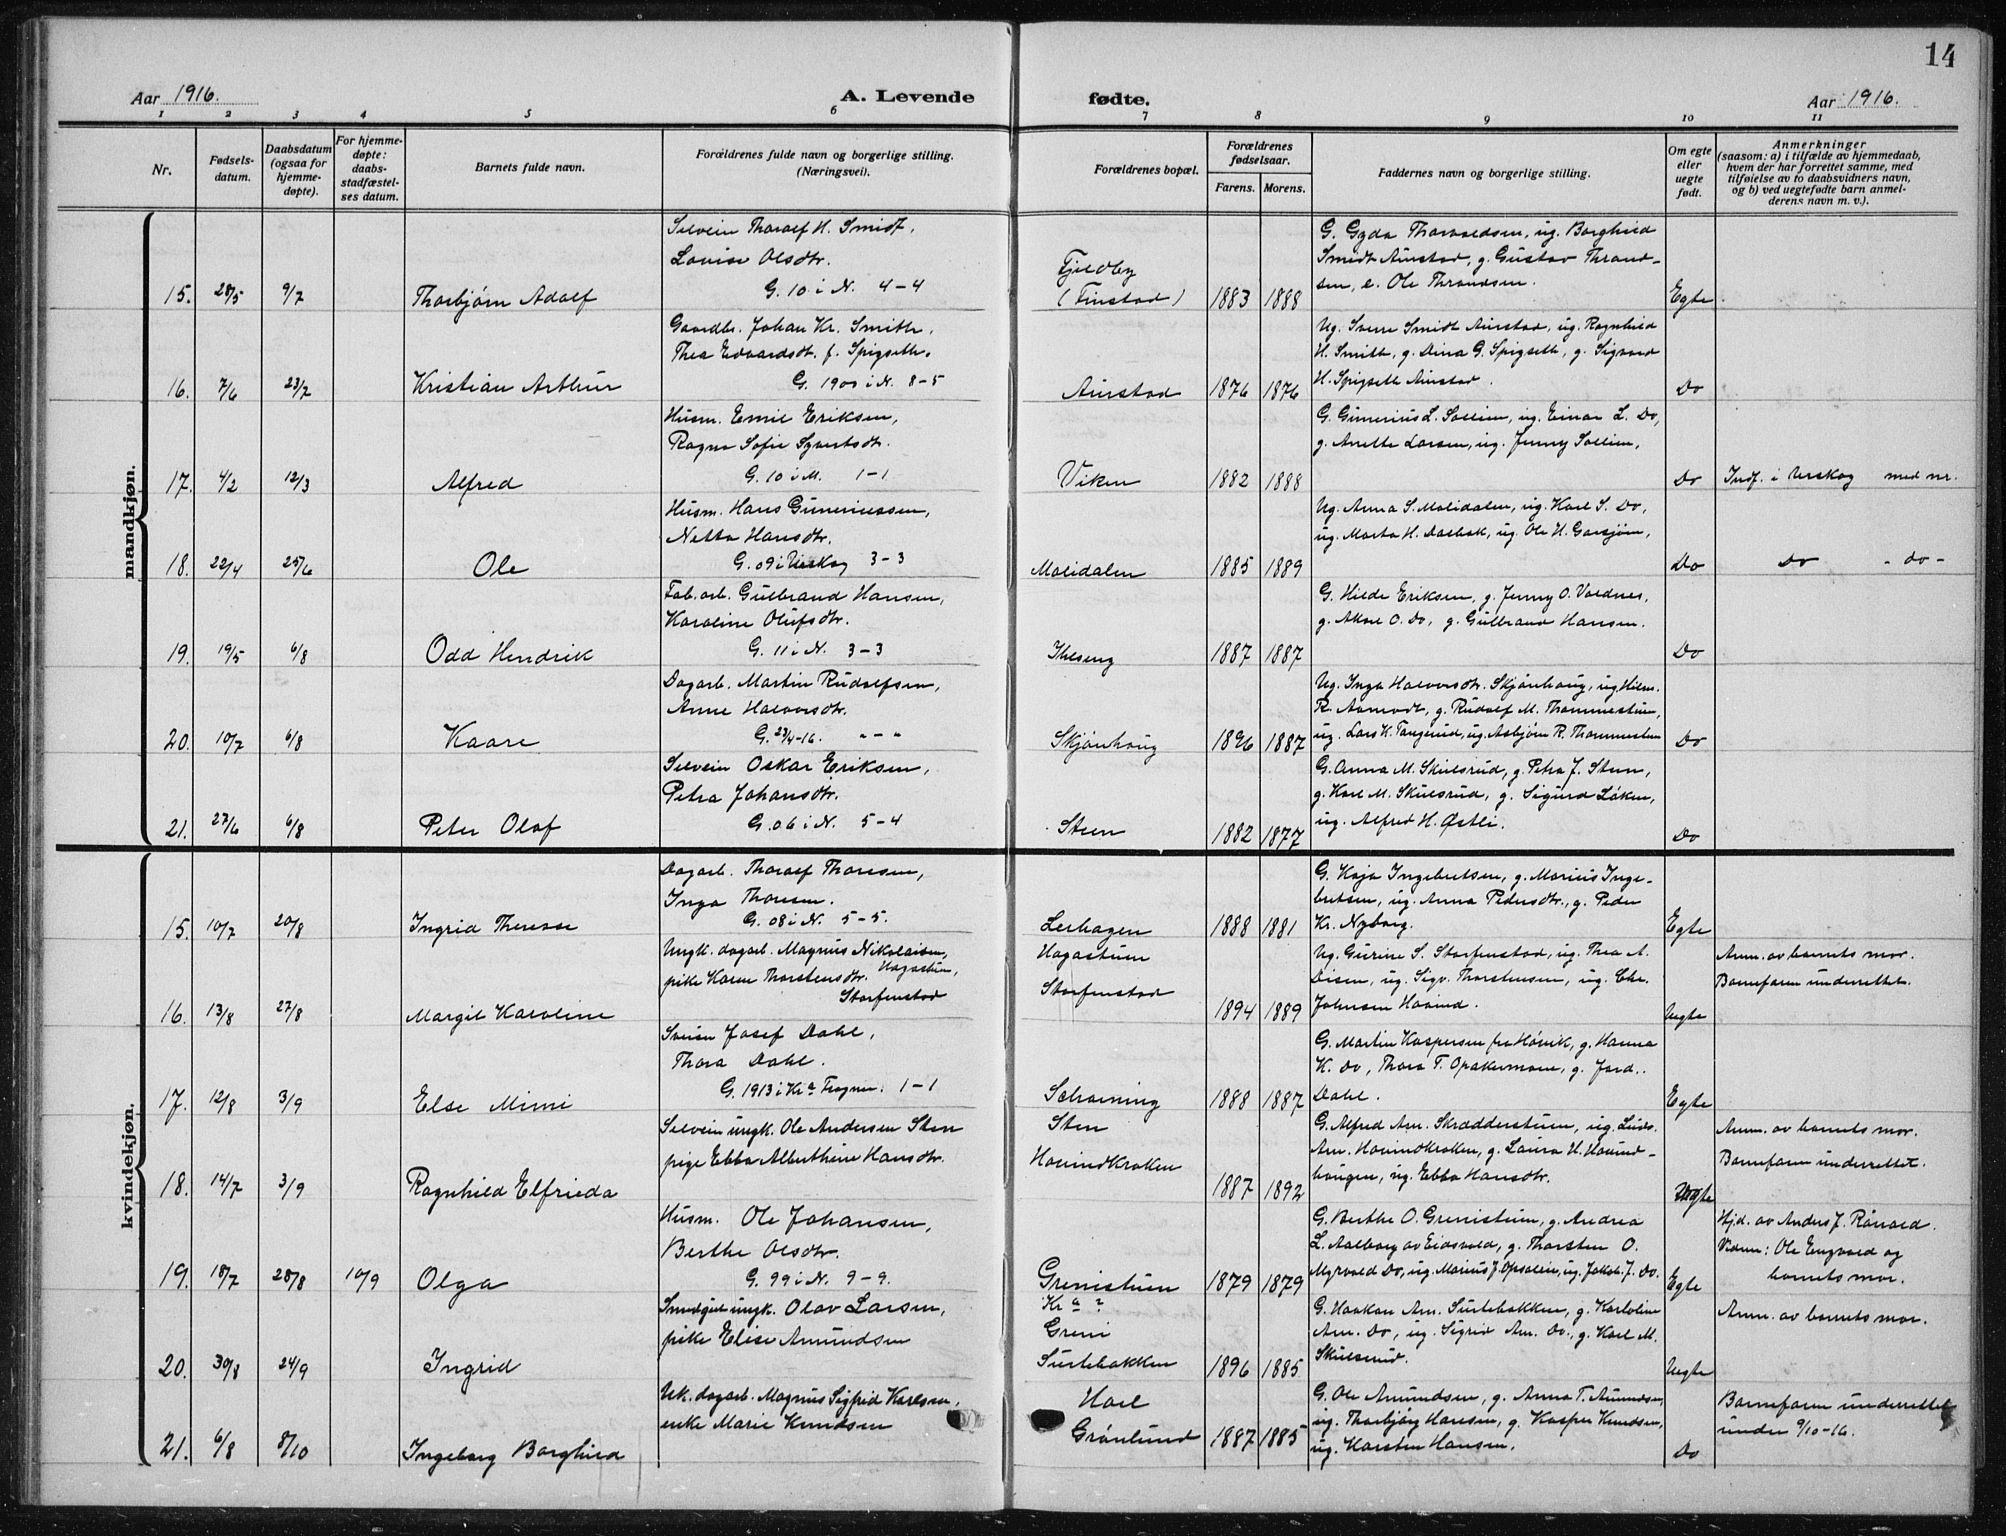 14
Aar 1916. A. Levende fødte. Aar 1916.
1 2 3 4 5 6 7 8 9 10 11
Nr.
Fødsels-
datum.
Daabsdatum
(ogsaa for
hjemme-
døpte).
For hjemme-
døpte:
daabs-
stadfæstel-
ses datum.
Barnets fulde navn.
Forældrenes fulde navn og borgerlige stilling.
(Næringsvei).
Forældrenes bopæl.
Forældrenes
fødselsaar.
Farens. Morens.
Faddernes navn og borgerlige stilling.
Om egte
eller
uegte
født.
Anmerkninger
(saasom: a) i tilfælde av hjemmedaab,
hvem der har forrettet samme, med
tilføielse av to daabsvidners navn,
og b) ved uegtefødte barn anmel-
derens navn m. v.).
mandkjøn.
15. 28/5 9/7 Thorbjørn Adolf
Selveier Thoralf H. Smidt,
Lovise Olsdtr.
G. 10 i N. 4-4
Fjeldby
(Finstad)
1883 1888
G. Gyda Thorvaldsen, ug. Borghild
Smidt Aurstad, g. Gustav Thrond-
sen, e. Ole Throndsen.
Egte
16. 7/6 23/7 Kristian Arthur
Gaardbr. Johan Kr. Smith,
Thea Edvardsdt. f. Spigseth.
G. 1900 i N. 8-5
Aurstad
1876 1876
Ug. Sverre Smidt Aurstad, ug. Ragnhild
H. Smith, g. Dina G. Spigseth, g. Sigvard
H. Spigseth Aurstad.
Do
17. 4/2 12/3 Alfred
Husm. Emil Eriksen,
Ragna Sofie Syvertsdtr.
G. 10 i M. 1-1
Viken
1882 1888
G. Gunerius L. Sollien, ug. Einar L. Do,
g. Anette Larsen, ug. Jenny Sollien,
Do
Indf. i Urskog med nr.
18. 22/4 25/6 Ole
Husm. Hans Guneriussen,
Netta Hansdtr.
G. 09 i Urskog 3-3
Molidalen
1885 1889
Ug. Anna S. Molidalen, ug. Karl S. Do,
ug. Marta H. Dalbak, ug. Ole H. Garsjøen,
Do
Do - do -
19. 19/5 6/8 Odd Hendrik
Fab. arb. Gulbrand Hansen,
Karoline Olufsdtr.
G. 11 i N. 3-3
Ihleeng
1887 1887
G. Hilda Eriksen, g. Jenny O. Voldnes,
g. Aksel O. Do, g. Gulbrand Hansen.
Do
20. 10/7 6/8 Kaare
Dagarb. Martin Rudolfsen,
Anne Halvorsdtr.
G. 23/4-16. " - "
Skjønhaug
1896 1887
Ug. Inga Halvorsdtr. Skjønhaug, ug. Hilm.
R. Aamodt, g. Rudolf M. Thommestuen,
ug. Lars H. Tangerud, ug. Asbjørn R. Thommestuen
Do
21. 27/6 6/8 Peter Olaf
Selveier Oskar Eriksen,
Petra Johansdtr.
G. 06 i N. 5-4
Steen
1882 1877
G. Anna M. Skulsrud, g. Petra J. Steen,
g. Karl M. Skulsrud, g. Sigurd Løken,
ug. Alfred H. Østli.
Do
kvindekjøn.
15. 10/7 20/8 Ingrid Therese
Dagarb. Thoralf Thoresen,
Inga Thoresen.
G. 08 i N. 5-5.
Lerhagen
1888 1881
G. Kaja Ingebretsen, g. Marius Inge-
bretsen, ug. Anna Pedersdtr., g. Peder
Kr. Nyborg.
Egte
16. 13/8 27/8 Margit Karoline
Ungk. dagarb. Magnus Nikolaisen,
pike Karen Thorstensdtr. Hagastuen,
Storfenstad
Hagastuen
Storfenstad
1894 1889
Ug. Gurine S. Storfenstad, ug. Thea A.
Disen, ug. Sigv. Thorstensen, ug. Chr.
Johnsen Hovind.
Uegte
Anm. av barnets mor.
Barnefaren underrettet.
17. 12/8 3/9 Else Mimi
Svein Josef Dahl,
Thora Dahl.
G. 1913 i Kra Frogner. 1-1
Schoining
1888 1887
G. Martin Kaspersen fra Høvik, g. Hanna
K. Do, Thora T. Opakermoen, g. Ford..
Dahl.
Egte
18. 14/7 3/9 Ragnhild Elfrieda
Selveier ungk. Ole Andersen Sten
pige Ebba Alberthine Hansdtr.
Sten
Hovindkroken
1887 1892
G. Alfred Am. Skrædderstuen, ug. Ludv.
Am. Hovindkroken, g. Laura H. Hovind-
haugen, ug. Ebba Hansdtr.
Uegte
Anm. av barnets mor.
Barnefaren underrettet.
19. 18/7 28/8 10/9 Olga
Husm. Ole Johansen,
Berthe Olsdtr.
G. 99 i N. 9-9.
Grenistuen
1879 1879
G. Berthe O. Grenistuen, g. Andrea
L. Aalborg av Eidsvold, g. Thorsten O.
Myrvold Do, ug. Marius J. Opsalen, ug. Jakob J. Do.
Egte
Hjd. av Anders J. Rånaed.
Vidner: Ole Engvold og
barnets mor.
20. 30/8 24/9 Ingrid
Smedgut ungk. Olav Larsen,
pike Elise Amundsen
Kra ?
Greni
Surtebakken
1896 1885
G. Haakon Am. Surtebakken, g. Karoline
Am. Do, ug. Sigrid Am. Do., g. Karl M.
Skulsrud.
Uegte
Anm. av barnets mor.
21. 6/8 8/10 Ingeborg Borghild
Uk. dagarb. Magnus Sigfrid Karlsen,
enke Marie Knudsen
Hoel
Grønlund
1887 1885
G. Ole Amundsen, g. Anna T. Amundsen,
ug. Thorbjørg Hansen, g. Kasper Knudsen,
ug. Karsten Hansen.
Do
Barnefaren underrettet
under 9/10-16.